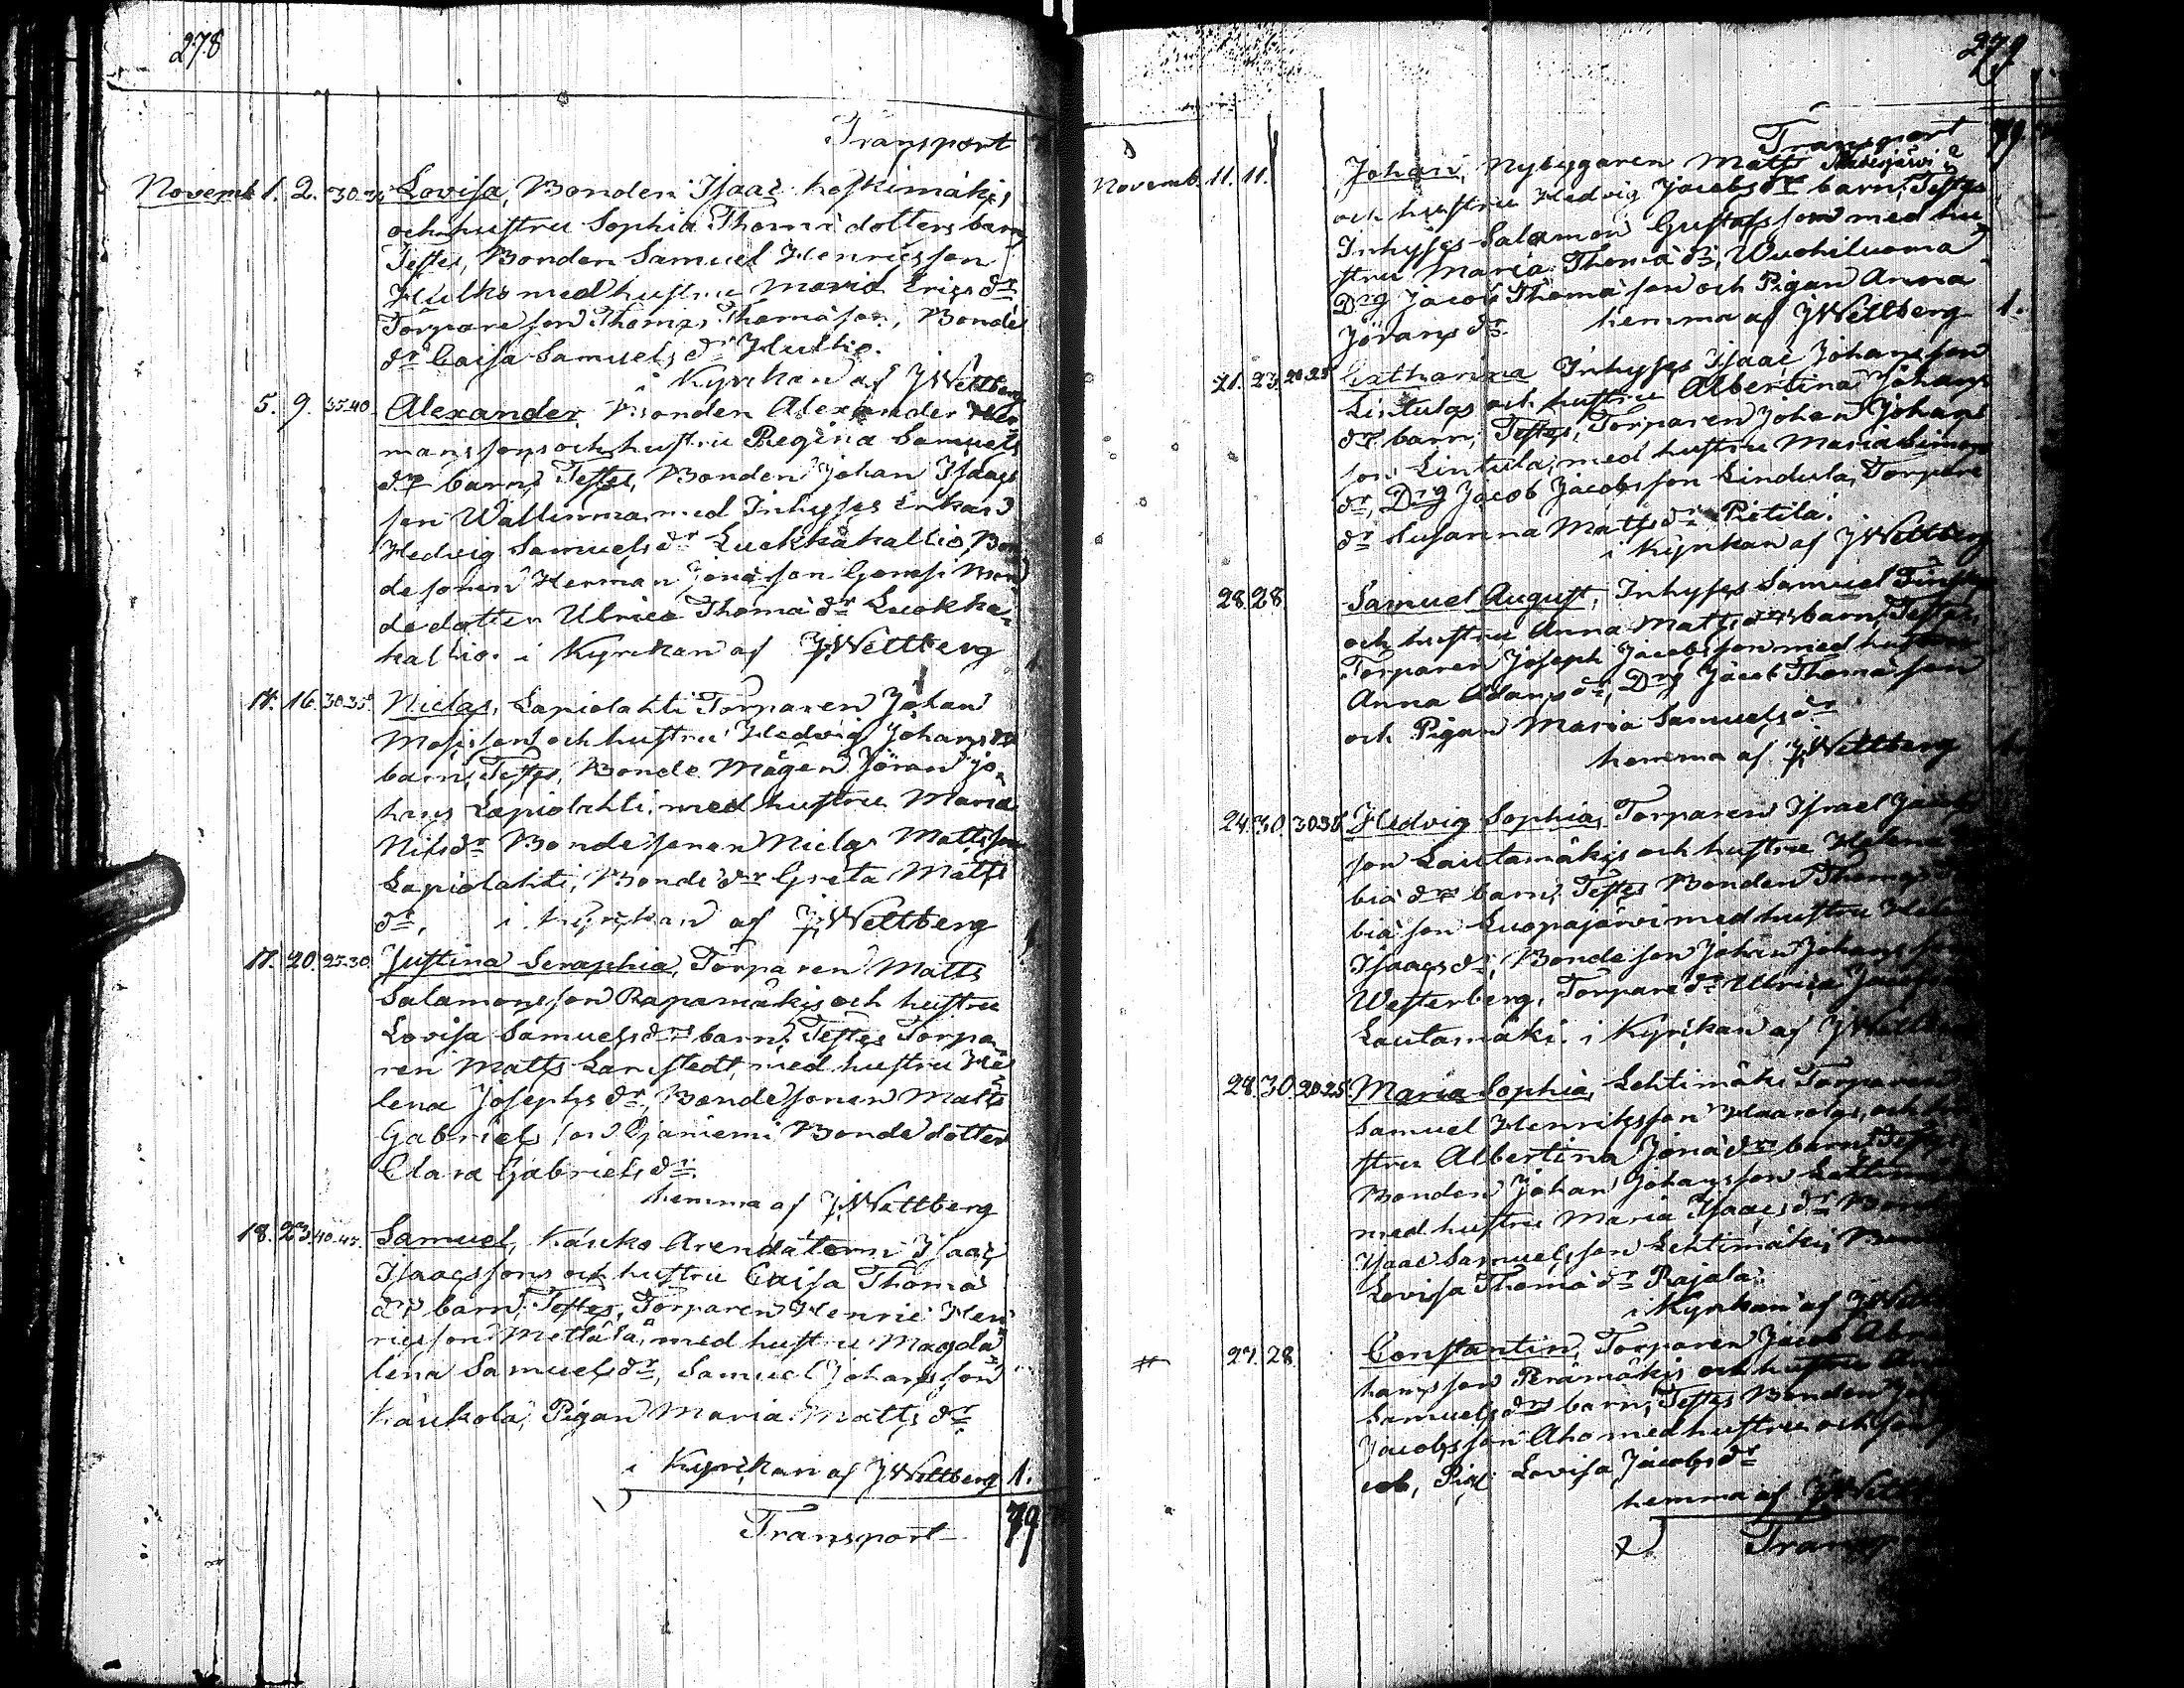 278
Transport
Novemb. 1. 2. 30.35 Lovisa, Bonden Isaac Koskimäkis
och hustru Sophia Thomædotters barn
Testes, Bonden Samuel Henricsson
Hulko med hustru Maria Ericsdr
Torpare son Thomas Thomasson, Bonde
dr Caisa Samuelsdr Hulko.
i Kyrkan af J Wettberg
5. 9. 35.40 Alexander, Bonden Alexander Her
manssons och hustru Regina Samuels
drs barn, Testes, Bonden Johan Isaacs
son Wallinma med Inhyses Enkan
Hedvig Samuelsdr Luokkakallio, Bon
desonen Herman Jonasson Gomsi Bon
dedotter Ulrica Thomædr Luokka
kallio. i Kyrkan af J Wettberg 1.
14. 16. 30.35. Niclas, Lapiolahti Torparen Johan
Mosisson och hustru Hedvig Johansdrs
barn, Testes, Bonde Mågen Jöran Jo
hans Lapiolahti med hustru Maria
Nilsdr Bondesonen Niclas Mattsson
Lapiolahti, Bondedr Greta Matts
dr, i Kyrkan af J Wettberg 1.
17. 20. 25.30 Justina Seraphia, Torparen Matts
Salamonsson Rapamäkis och hustru
Lovisa Samuelsdrs barn. Testes Torpa
ren Matts Lanstedt, med hustru He
lena Josephsdr, Bondesonen Matts
Gabrielsson Ojaniemi Bondedotter
Clara Gabrielsdr.
hemma af J Wettberg
18. 23. 40.45. Samuel, Kauko Arendatorn Isaac
Isaacssons och hustru Caisa Thomæ
drs barn, Testes, Torparen Henric Hen
ricsson Mettälä, med hustru Magda
lena Samuelsdr, Samuel Johansson
Kaukola, Pigan Maria Mattsdr
i Kyrkan af J Wettberg 1.
Transport 79
279
Transport 79.
Novemb. 11. 11. Johan, Nybyggaren Matts
och hustru Hedvig Jacobsdrs barn, Testes
Inhyses Salamon Gustafsson med hu
stru Maria Thomædr, Wuohiluoma
Drg Jacob Thomasson och Pigan Anna
Jöransdr. hemma af J Wettberg 1.
21. 23. 20.25 Catharina Inhyses Isaac Johansson
Lintulas och hustru Albertina Johans
drs barn, Testes, Torparen Johan Johans
son Lintula, med hustru Maria Simons
dr, Drg Jacob Jacobsson Lindula, Torpare
dr Susanna Mattsdr Pietilä.
i Kyrkan af J Wettberg
28. 28 Samuel August, Inhyses Samuel
och hustru Anna Mattsdrs barn, Testes,
Torparen Joseph Jacobsson med hustru
Anna Adamsdr, Drg Jacob Thomasson
och Pigan Maria Samuelsdr
hemma af J Wettberg 1.
24. 30. 30.35 Hedvig Sophia, Torparen Israel
son Lautamäkis och hustru Helena
biædrs barn, Testes Bonden Thomas
biæson Luopajärvi med hustru
Isaacsdr, Bondeson Johan Johansson
Westerberg, Torparedr Ulrica
Lautamäki. i Kyrkan af J
28. 30. 20.25 Maria Sophia, Lehtimäki Torparen
Samuel Henriksson Haarolas, och
stru Albertina Jonædrs barn, Testes
Bonden Johan Johansson
med hustru Maria Isaacsdr
Isaac Samuelsson Lehtimäki,
Lovisa Thomædr Rajala.
i Kyrkan af J
27. 28 Constantin, Torparen Jacob Abra
hamsson Perämäkis och hustru
Samuelsdrs barn, Testes Bonden
Jacobsson Aho med hustru och son
cob, Pig. Lovisa Jacobsdr
hemma af J
Transp